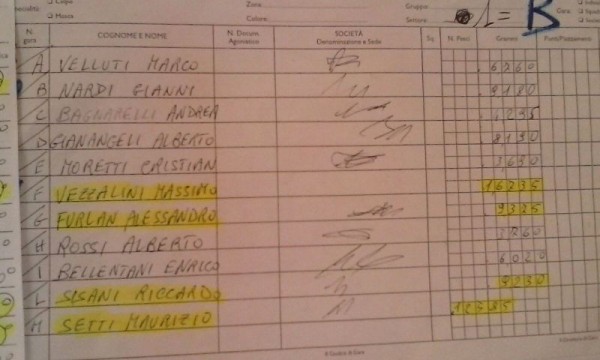 Zona
Gruppo
Colore
Settore L = B
Gara
N. gara COGNOME E NOME N. Docum. Agonistico SOCIETÀ Denominazione e Sede Sq. N. Pesci Grammi Punti/Piazzamenti
A VELLUTI MARCO 6260
B NARDI GIANNI 9180
C BAGNARELLI ANDREA
D GIANANGELI ALBERTO 8190
E MORETTI CRISTIAN 3630
F VEZZALINI MASSIMO 16235
G FURLAN ALESSANDRO 9325
H ROSSI ALBERTO
I BELLENTANI ENRICO 6020
L SISANI RICCARDO 9230
M SETTI MAURIZIO
Il Giudice di Gara